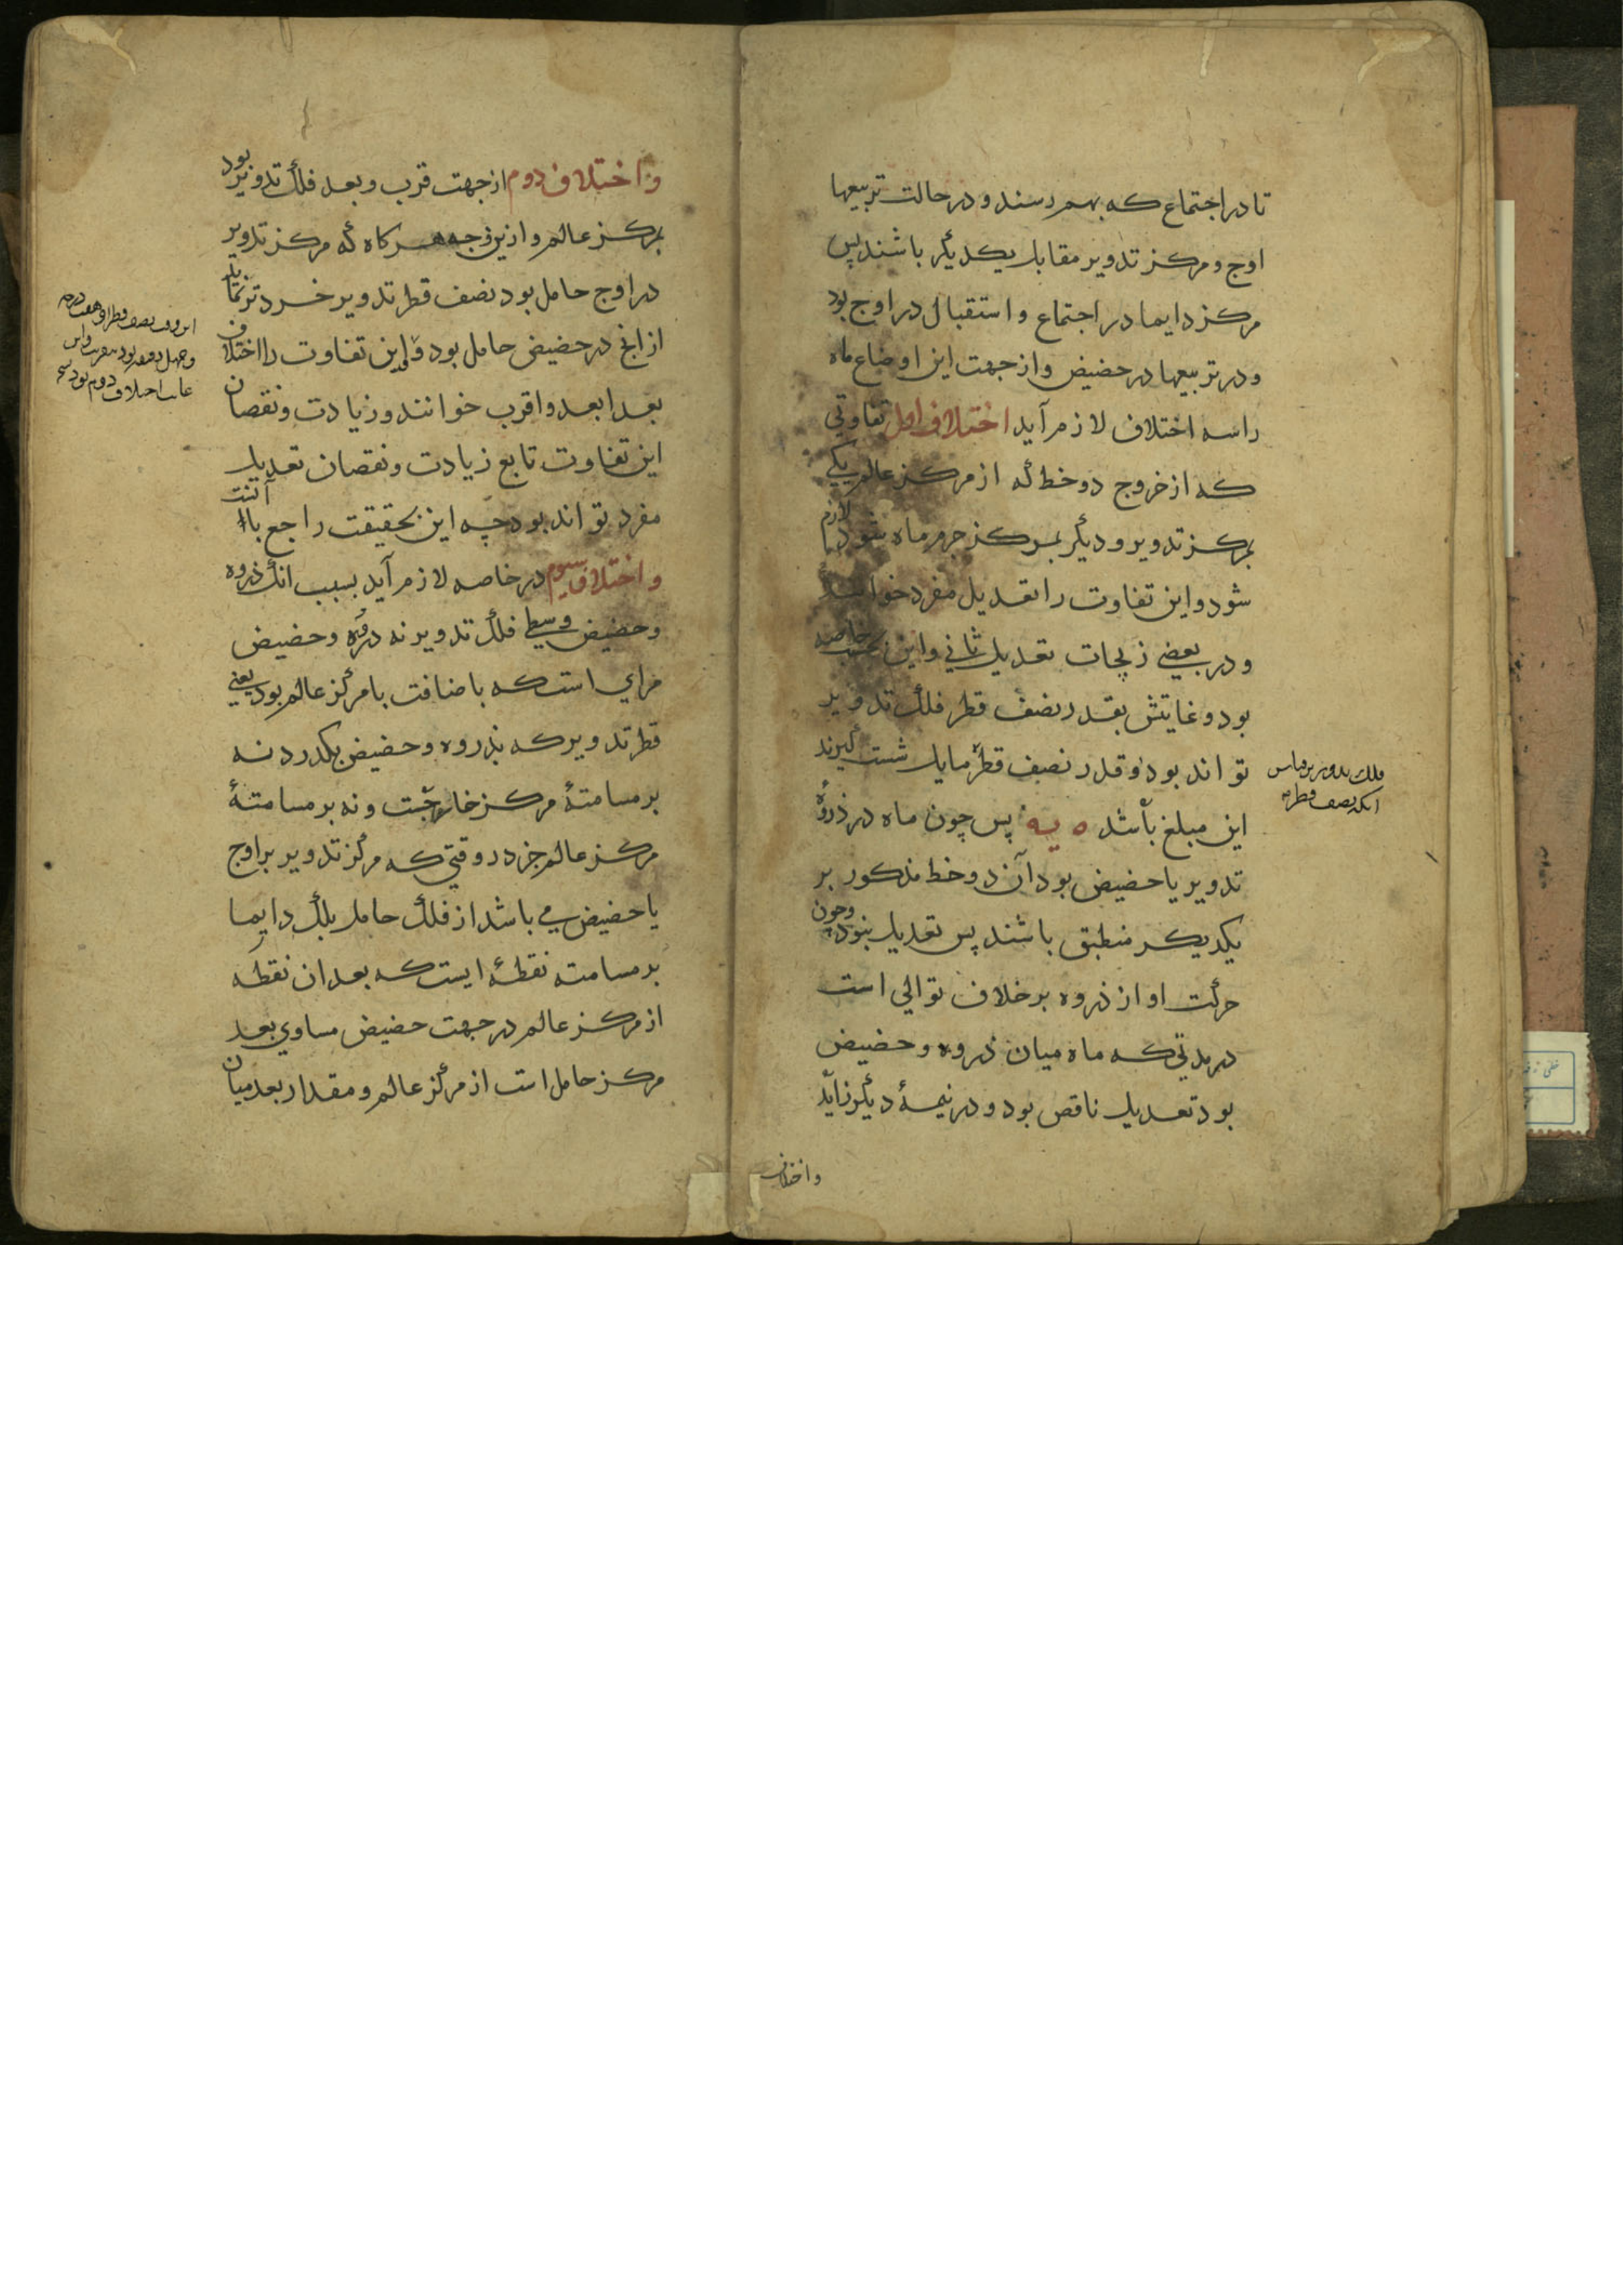 تا در اجتماع که بهم رسند و در حالت تربیعها
اوج و مرکز تدویر مقابل یکدیگر باشند پس
مرکز دایما در اجتماع و استقبال در اوج بود
و در تربیعها در حضیض و از جهت این اوضاع ماه
را سه اختلاف لازم آید اختلاف اول تفاوتی
که از خروج دو خط که از مرکز عالم یکی
بمرکز تدویر و دیگر بمرکز جرم ماه شود لازم
شود و این تفاوت را تعدیل مفرد خوانند
و در بعضی زیجات تعدیل ثانی و این بحسب خاصه
بود و غایتش بقدر نصف قطر فلک تدویر
تواند بود و قدر نصف قطر مایل شست گیرند
این مبلغ باشد ه یه پس چون ماه در ذروهٔ
تدویر یا حضیض بود آن دو خط مذکور بر
یکدیکر منطبق باشند پس تعدیل بنود و چون
حرکت او از ذروه بر خلاف توالی است
در مدتی که ماه میان ذروه و حضیض
بود تعدیل ناقص بود و در نیمهٔ دیگر زاید
فلک تدویر بر قیاس
آنکه نصف قطر
و اختلاف
و اختلاف دوم از جهت قرب و بعد فلک تدویر بود
بمرکز عالم و ازین وجه هرکاه که مرکز تدویر
در اوج حامل بود نصف قطر تدویر خردتر نماید
از انج در حضیض حامل بود و این تفاوت را اختلاف
بعد ابعد و اقرب خوانند و زیادت و نقصان
این تفاوت تابع زیادت و نقصان تعدیل
مفرد تواند بود چه این بحقیقت راجع با آنست
و اختلاف سیوم در خاصه لازم آید بسبب انک ذروه
و حضیض وسطی فلک تدویر نه ذروه و حضیض
مرای است که باضافت با مرکز عالم بود یعنی
قطر تدویر که بذروه و حضیض بکدرد نه
بر مسامتهٔ مرکز خارجست و نه بر مسامتهٔ
مرکز عالم جز در وقتی که مرکز تدویر بر اوج
یا حضیض می باشد از فلک حامل بلک دایما
بر مسامته نقطهٔ ایست که بعد ان نقطه
از مرکز عالم در جهت حضیض مساوی بعد
مرکز حامل است از مرکز عالم و مقدار بعد میان